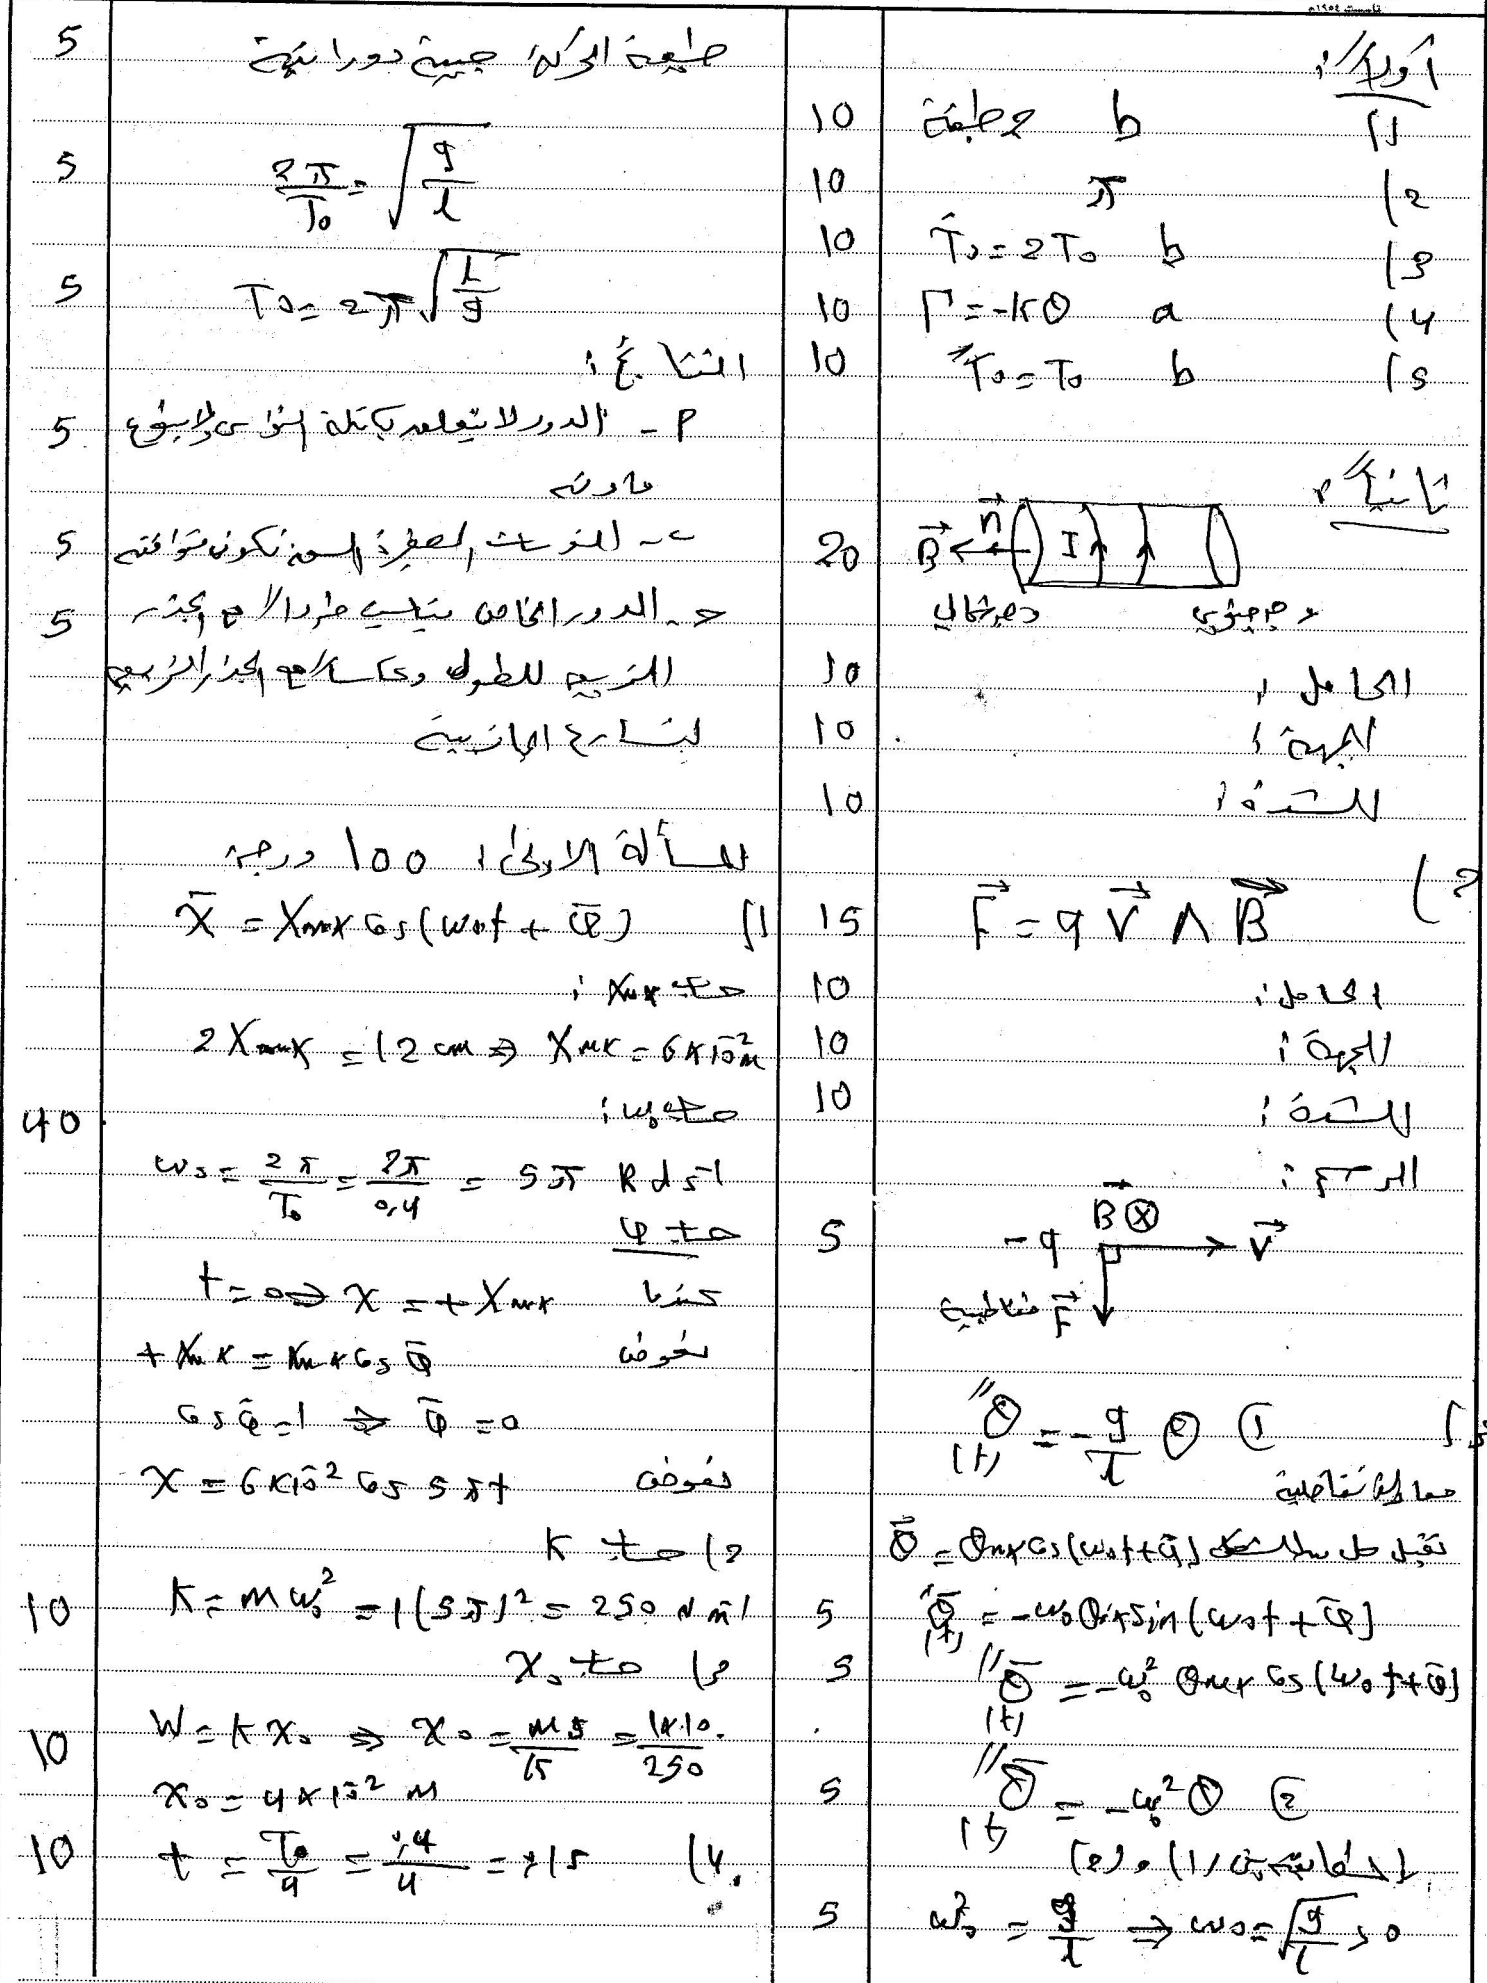 أولاً:
1) b 2 طبقة 10
2) π 10
3) b T́₀ = 2T₀ 10
4) a Γ = -kθ 10
5) b T́₀ = T₀ 10
ثانياً:
B⃗ n⃗ I 20
وجه شمالي وجه جنوبي
الحامل: 10
الجهة: 10
الشدة: 10
2) F⃗ = q V⃗ Λ B⃗ 15
الحامل: 10
الجهة: 10
الشدة: 10
الرسم:
B⃗ ⊗
-q V⃗ 5
F⃗ مغناطيسية
θ″(t) = - g/l θ ①
معادلة تفاضلية
تقبل حل من الشكل θ̄ = θmax cos(ω₀t + φ̄)
θ̄′(t) = -ω₀ θmax sin(ω₀t + φ̄) 5
θ̄″(t) = -ω₀² θmax cos(ω₀t + φ̄) 5
θ̄″(t) = -ω₀² θ ② 5
بالمطابقة بين (1) و (2)
ω₀² = g/l ⇒ ω₀ = √(g/l) > 0 5
طبيعة الحركة جيبية دورانية 5
2π/T₀ = √(g/l) 5
T₀ = 2π √(L/g) 5
النتائج:
P - الدور لا يتعلق بكتلة النواس ولا بنوع 5
مادته
ب - النوسات الصغيرة السعة تكون متواقتة 5
ج - الدور الخاص يتناسب طرداً مع الجذر 5
التربيعي للطول وعكساً مع الجذر التربيعي
لتسارع الجاذبية
المسألة الاولى: 100 درجة
1) x̄ = Xmax cos(ω₀t + φ̄)
حساب Xmax:
2Xmax = 12 cm ⇒ Xmax = 6×10⁻² m
حساب ω₀: 40
ω₀ = 2π/T₀ = 2π/0,4 = 5π Rd s⁻¹
حساب φ
عندما t = 0 ⇒ x = +Xmax
نعوض +Xmax = Xmax cos φ̄
cos φ̄ = 1 ⇒ φ̄ = 0
نعوض x = 6×10⁻² cos 5πt
2) حساب K
K = m ω₀² = 1(5π)² = 250 N m⁻¹ 10
3) حساب x₀
W = k x₀ ⇒ x₀ = mg/k = 1×10/250 10
x₀ = 4×10⁻² m
4) t = T₀/4 = 0,4/4 = 0,1 s 10